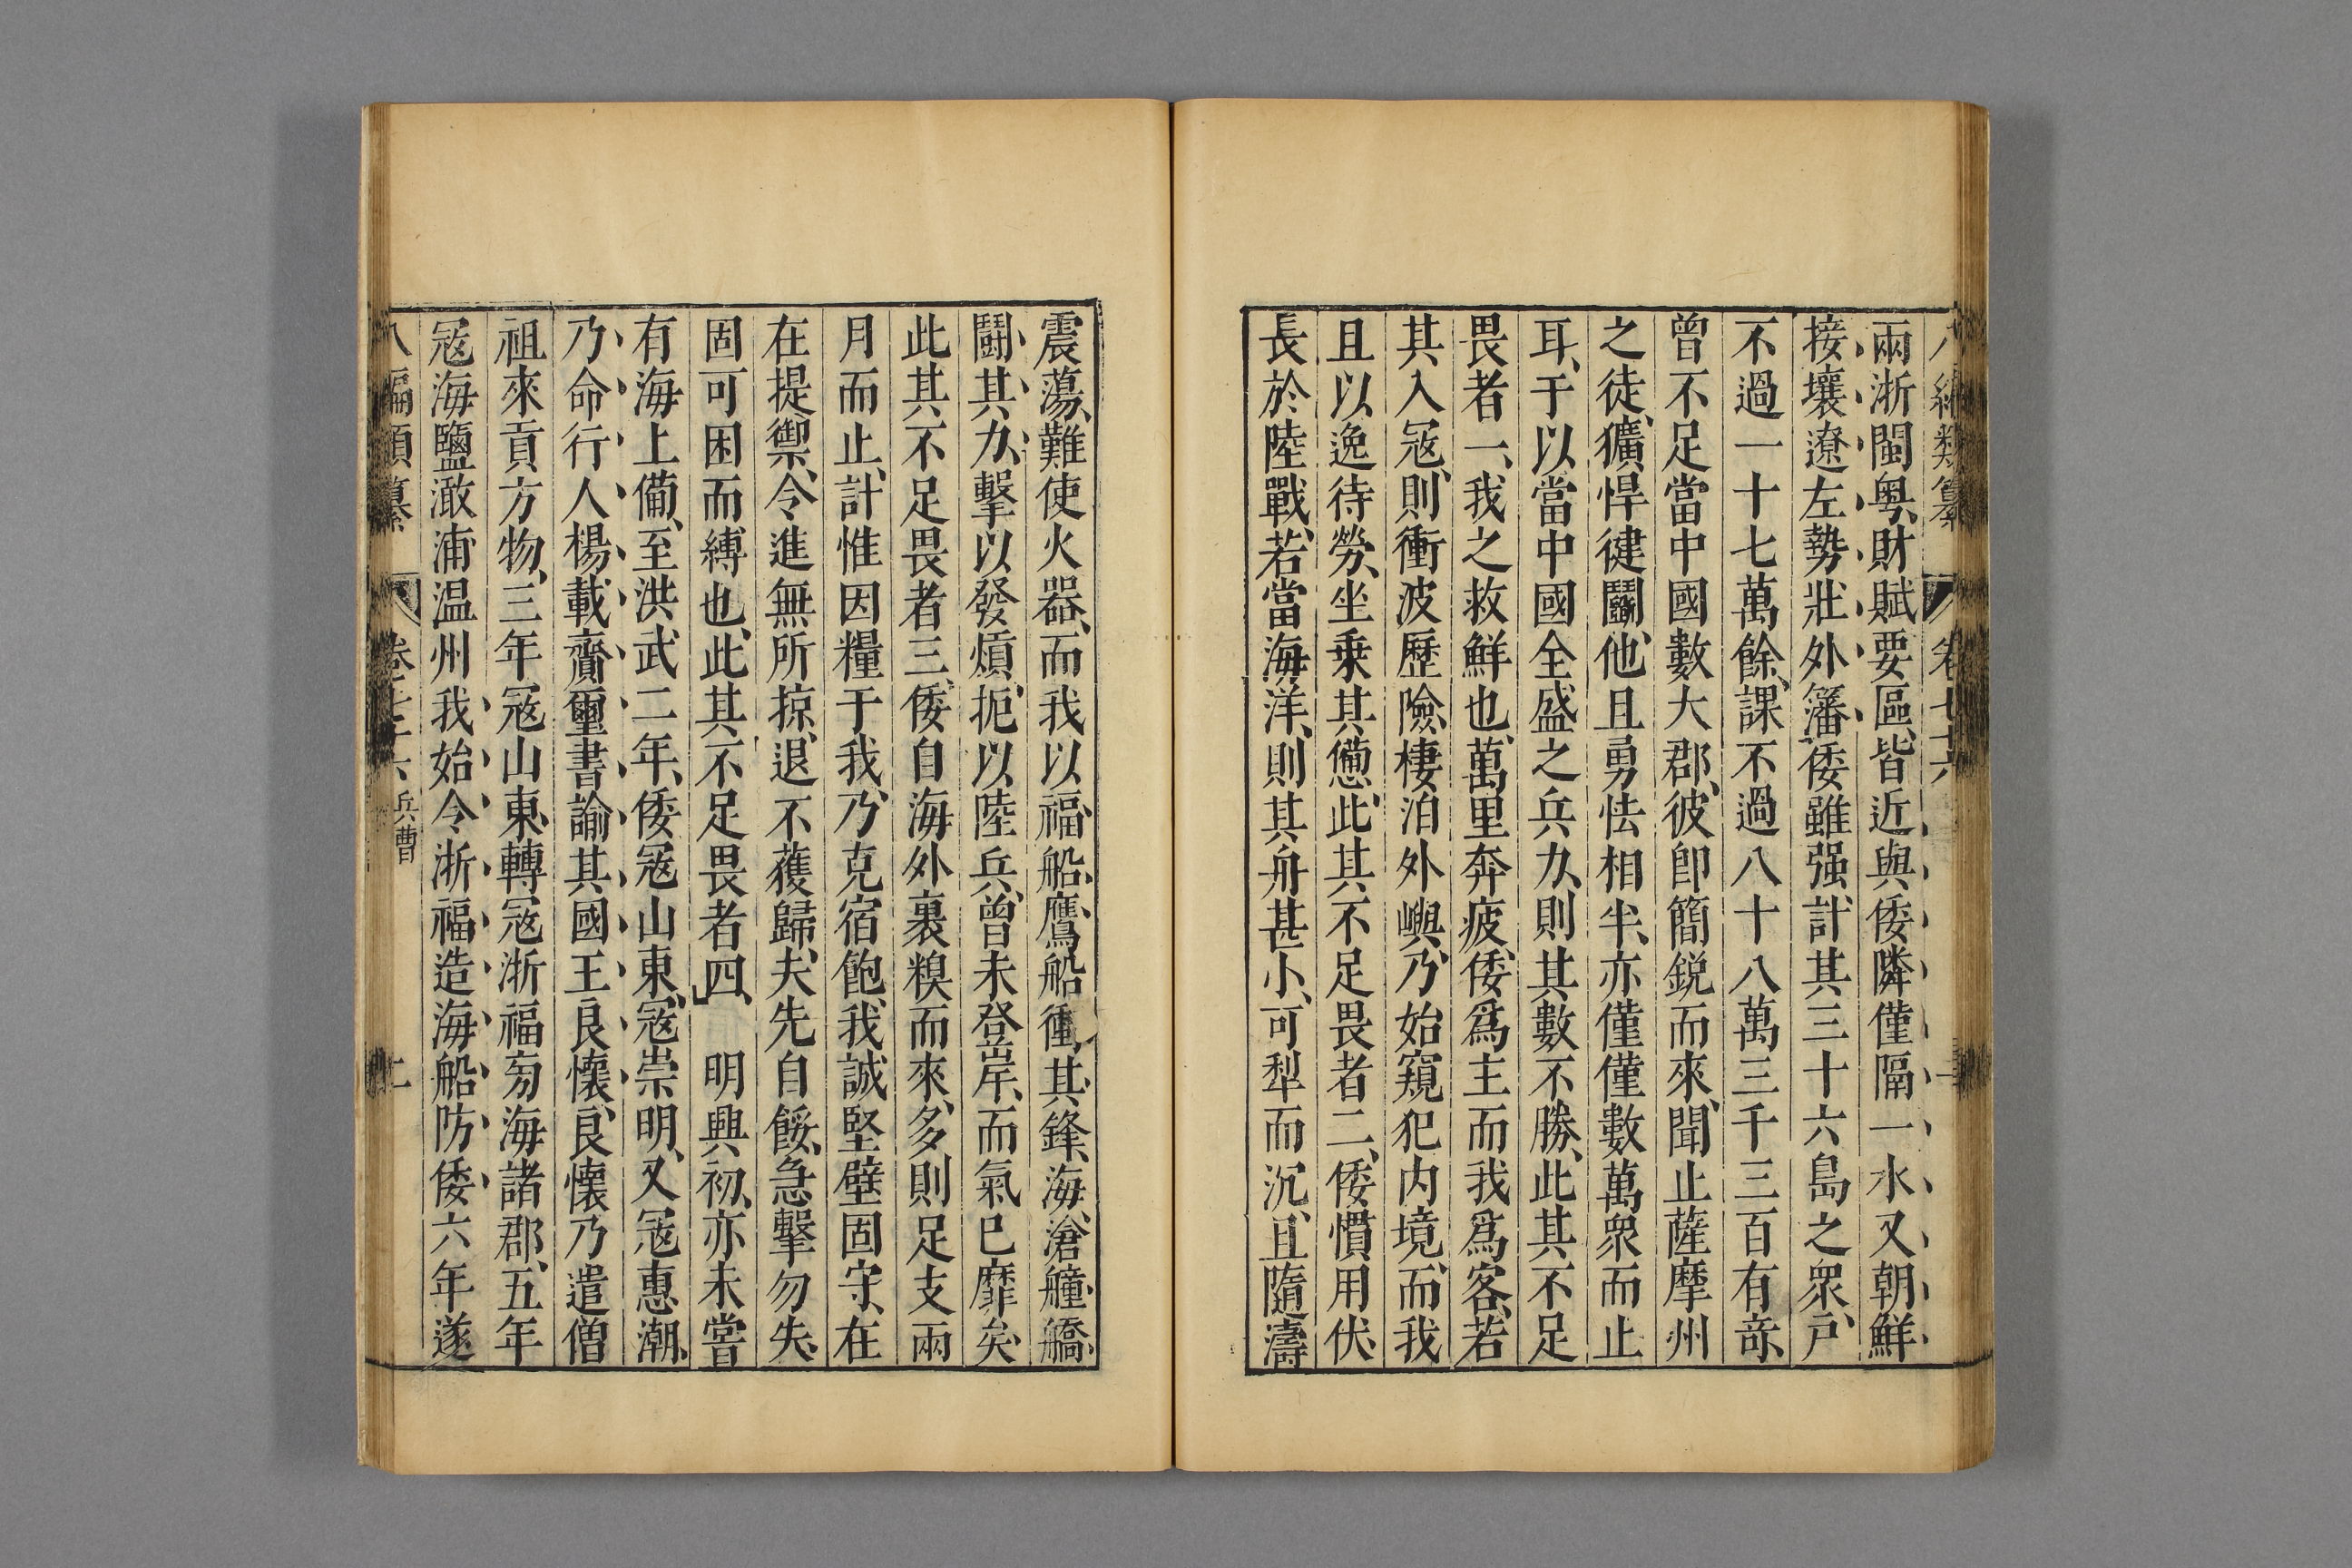 八編類纂 卷七十六
兩浙閩粵、財賦要區、皆近與倭隣僅隔一水又朝鮮
接壤遼左勢壯外籓、倭雖强、計其三十六島之眾、戶
不過一十七萬餘、課不過八十八萬三千三百有竒、
曾不足當中國數大郡、彼卽簡銳而來、聞止薩摩州
之徒、獷悍健鬬、他且勇怯相半、亦僅僅數萬眾而止
耳、于以當中國全盛之兵力、則其數不勝、此其不足
畏者一、我之救鮮也、萬里奔疲、倭爲主而我爲客、若
其入寇、則衝波歷險、棲泊外嶼、乃始窺犯内境、而我
且以逸待勞、坐乗其憊、此其不足畏者二、倭慣用伏、
長於陸戰、若當海洋、則其舟甚小、可犁而沉、且隨濤
震蕩、難使火器、而我以福船鷹船衝其鋒、海滄艟艍
鬪其力、擊以發熕、扼以陸兵、曾未登岸、而氣已靡矣、
此其不足畏者三、倭自海外裹糗而來、多則足支兩
月而止、計惟因糧于我、乃克宿飽、我誠堅壁固守、在
在提禦、令進無所掠、退不獲歸、夫先自餒、急擊勿失、
固可困而縛也、此其不足畏者四、 明興初、亦未嘗
有海上僃、至洪武二年、倭寇山東、寇崇明、又寇惠潮、
乃命行人楊載齎璽書諭其國王良懷、良懷乃遣僧
祖來貢方物、三年寇山東、轉寇浙福旁海諸郡、五年
寇海鹽澉浦温州我始令浙福造海船防倭六年遂
八編類纂 卷七十六 兵曹 二